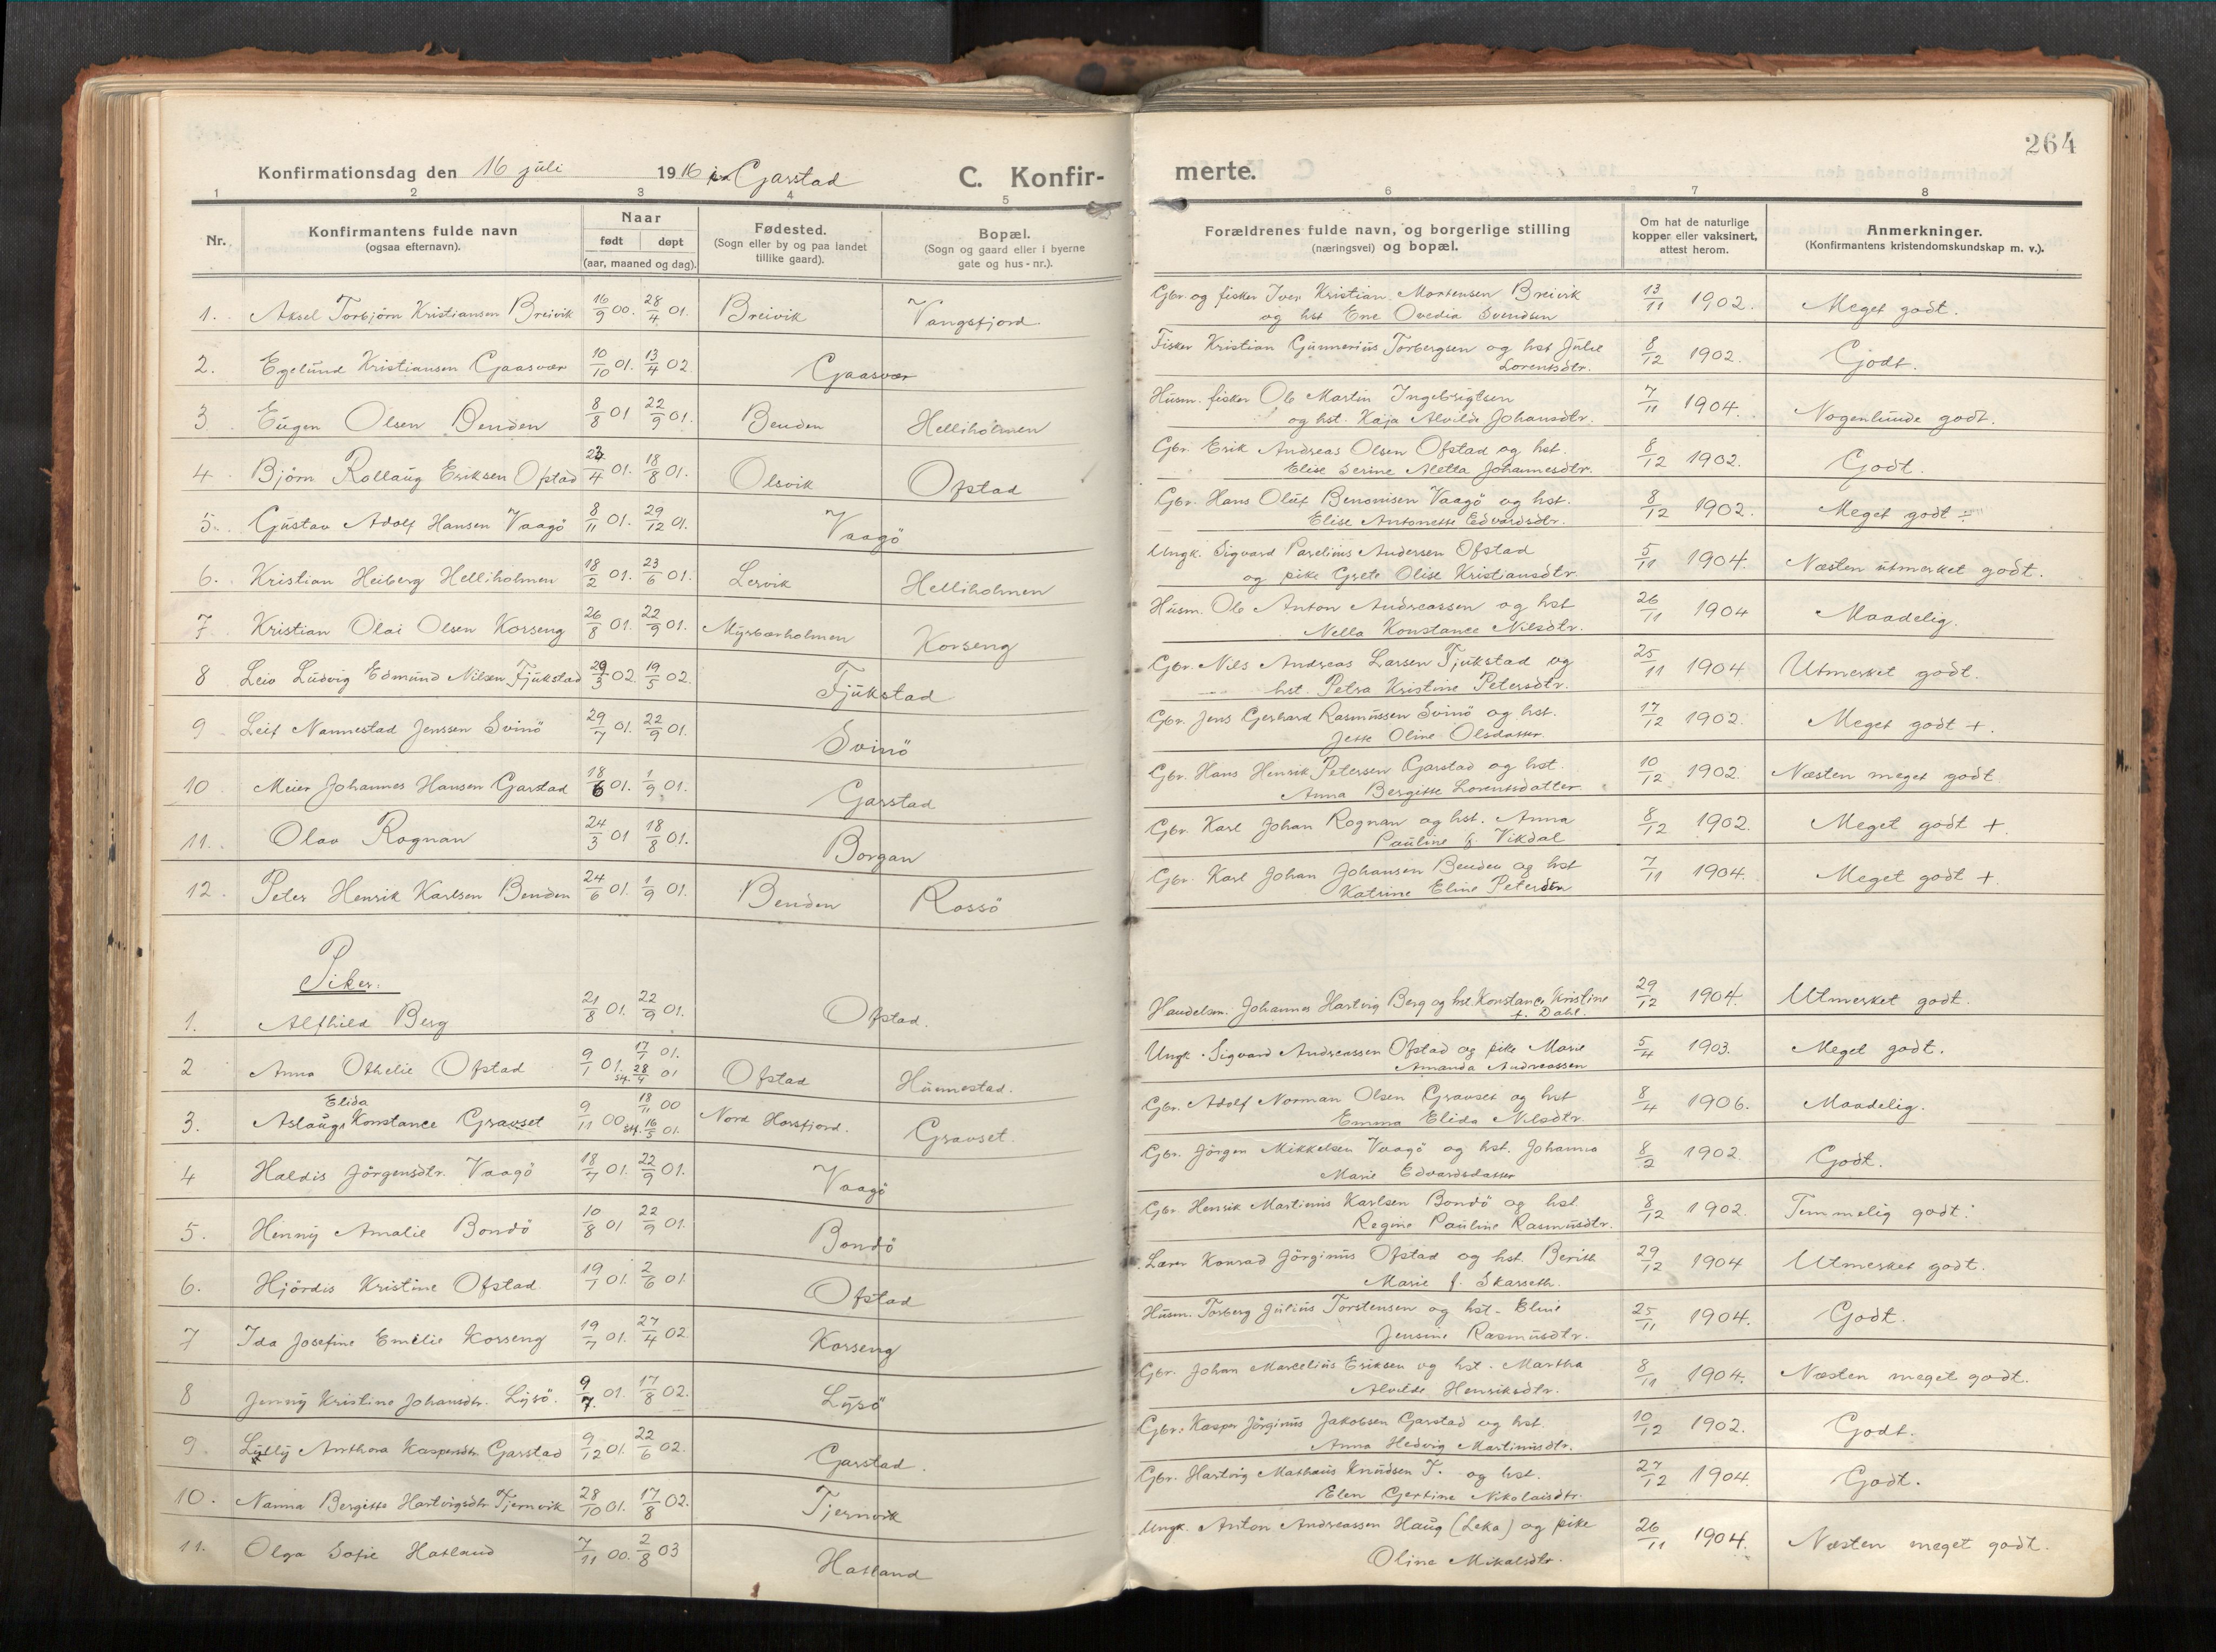 264
Konfirmationsdag den 16 juli 1916 i Garstad C. Konfir-merte.
1 2 3 4 5 6 7 8
Nr. Konfirmantens fulde navn (ogsaa efternavn). Naar født døpt (aar, maaned og dag). Fødested. (Sogn eller by og paa landet tillike gaard). Bopæl. (Sogn og gaard eller i byerne gate og hus-nr.). Forældrenes fulde navn, og borgerlige stilling (næringsvei) og bopæl. Om hat de naturlige kopper eller vaksinert, attest herom. Anmerkninger. (Konfirmantens kristendomskundskap m. v.).
1. Aksel Torbjörn Kristiansen Breivik 16/9 00. 28/4 01. Breivik Vangsfjord Gbr. og fisker Iver Kristian Mortensen Breivik 13/11 1902. Meget godt.
og hst Ene Ovedia Svendsen
2. Egelund Kristiansen Gaasvær 10/10 01. 13/4 02 Gaasvær Fisker Kristian Gunnerius Torbergsen og hst Julie 8/12 1902. Godt.
Lorentsdtr.
3 Eugen Olsen Benden 8/8 01 22/9 01. Benden Helliholmen Husm. fisker Ole Martin Ingebrigtsen 7/11 1904. Nogenlunde godt.
og hst. Kaja Alvilde Johansdtr.
4. Björn Rollaug Eriksen Ofstad 23/4 01. 18/8 01. Olsvik Ofstad Gbr. Erik Andreas Olsen Ofstad og hst. 8/12 1902. Godt.
Elise Serine Aletta Johannesdtr.
5. Gustav Adolf Hansen Vaagö 8/11 01. 29/12 01. Vaagö Gbr. Hans Oluf Benonisen Vaagö og hst. 8/12 1902. Meget godt ÷
Elise Antonette Edvardsdtr.
6. Kristian Heiberg Helliholmen 18/2 01. 23/6 01. Lervik Helliholmen Ungk. Sigvard Parelius Andersen Ofstad 5/11 1904. Næsten utmerket godt.
og pike Grete Olise Kristiansdtr.
7. Kristian Olai Olsen Korseng 26/8 01. 22/9 01. Myrbærholmen Korseng Husm. Ole Anton Andreassen og hst 26/11 1904 Maadelig.
Nella Konstance Nilsdtr.
8 Leiv Ludvig Edmund Nilsen Fjukstad 29/3 02. 19/5 02. Fjukstad Gbr. Nils Andreas Larsen Fjukstad og 25/11 1904 Utmerket godt.
hst. Petra Kristine Petersdtr.
9 Leif Nannestad Jenssen Svinö 29/7 01. 22/9 01. Svinö Gbr. Jens Gerhard Rasmussen Svinö og hst. 17/12 1902. Meget godt +.
Jette Oline Olsdatter.
10 Meier Johannes Hansen Garstad 18/6 01. 1/9 01. Garstad Gbr. Hans Henrik Petersen Garstad og hst. 10/12 1902. Næsten meget godt.
Anna Bergitte Lorentsdatter
11. Olav Rognan 24/3 01 18/8 01. Borgan Gbr. Karl Johan Rognan og hst. Anna 8/12 1902. Meget godt +.
Pauline f. Vikdal
12. Peter Henrik Karlsen Benden 24/6 01. 1/9 01. Benden Rossö Gbr. Karl Johan Johansen Benden og hst 7/11 1904. Meget godt +
Katrine Eline Petersen
Piker.
1. Alfhild Berg 21/8 01. 22/9 01. Ofstad. Handelsm. Johannes Hartvig Berg og hst. Konstance Kristine 29/12 1904. Utmerket godt.
f. Dahl.
2 Anna Othelie Ofstad 9/1 01. 17/1 01. st. 28/4 01 Ofstad Hunnestad. Ungk. Sigvard Andreassen Ofstad og pike Marie 5/4 1903. Meget godt.
Amanda Andreassen
3. Aslaug Elida Konstance Gravset 9/11 00 18/11 00 st. 16/5 01. Nord Horsfjord. Gravset. Gbr. Adolf Norman Olsen Gravset og hst 8/4 1906. Maadelig.
Emma Elida Nilsdtr.
4 Haldis Jörgensdtr. Vaagö 18/7 01. 22/9 01. Vaagö Gbr. Jörgen Mikkelsen Vaagö og hst. Johanna 8/2 1902. Godt.
Marie Edvardsdatter
5. Henny Amalie Bondö 10/8 01 22/9 01. Bondö Gbr. Henrik Martinus Karlsen Bondö og hst 8/12 1902. Temmelig godt.
Regine Pauline Rasmusdtr.
6. Hjördis Kristine Ofstad 19/1 01. 2/6 01 Ofstad Lærer Konrad Jörginus Ofstad og hst. Berith 29/12 1904 Utmerket godt.
Marie f. Skarseth.
7 Ida Josefine Emelie Korseng 19/7 01. 27/4 02. Korseng Husm. Torberg Julius Torstensen og hst. Eline 25/11 1904. Godt.
Jensine Rasmusdtr.
8 Jenny Kristine Johansdtr. Lysö. 9/7 01 17/8 02. Lysö Gbr. Johan Marcelius Eriksen og hst. Martha 8/11 1904. Næsten meget godt.
Alvilde Henriksdtr.
9. Lylly Anthora Kaspersdtr Garstad 9/12 01. 22/6 02. Garstad. Gbr. Kasper Jörginus Jakobsen Garstad og hst. 10/12 1902. Godt.
Anna Hedvig Martinusdtr.
10. Nanna Bergitte Hartvigsdtr Tjernvik 28/10 01. 17/8 02. Tjernvik Gbr. Hartvig Mathæus Knudsen T. og hst. 27/12 1904. Godt.
Elen Gertine Nikolaisdtr.
11. Olga Sofie Hatland 7/11 00. 2/8 03 Hatland Ungk. Anton Andreassen Haug (Leka) og pike 26/11 1904. Næsten meget godt.
Oline Mikalsdtr.